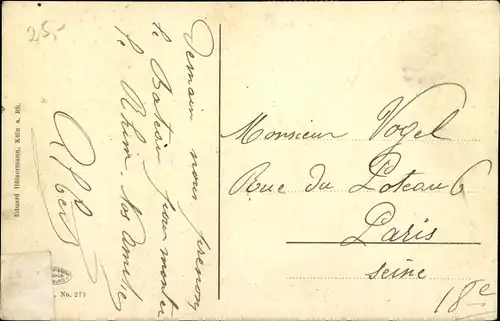 25,-
Demain nous prenons
le Bateau pour monter
le Rhin. Nos Amitiés
Albert
Monsieur Vogel
Rue du Poteau 6
Paris
Seine
18e
Eduard Hünermann, Köln a. Rh.
No. 273